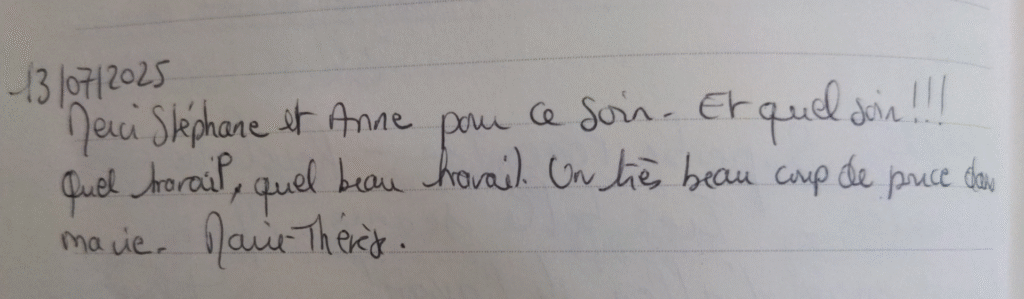 13/07/2025
Merci Stéphane et Anne pour ce soin. Et quel soin!!!
Quel travail, quel beau travail. Un très beau coup de pouce dans
ma vie. Marie-Thérèse.